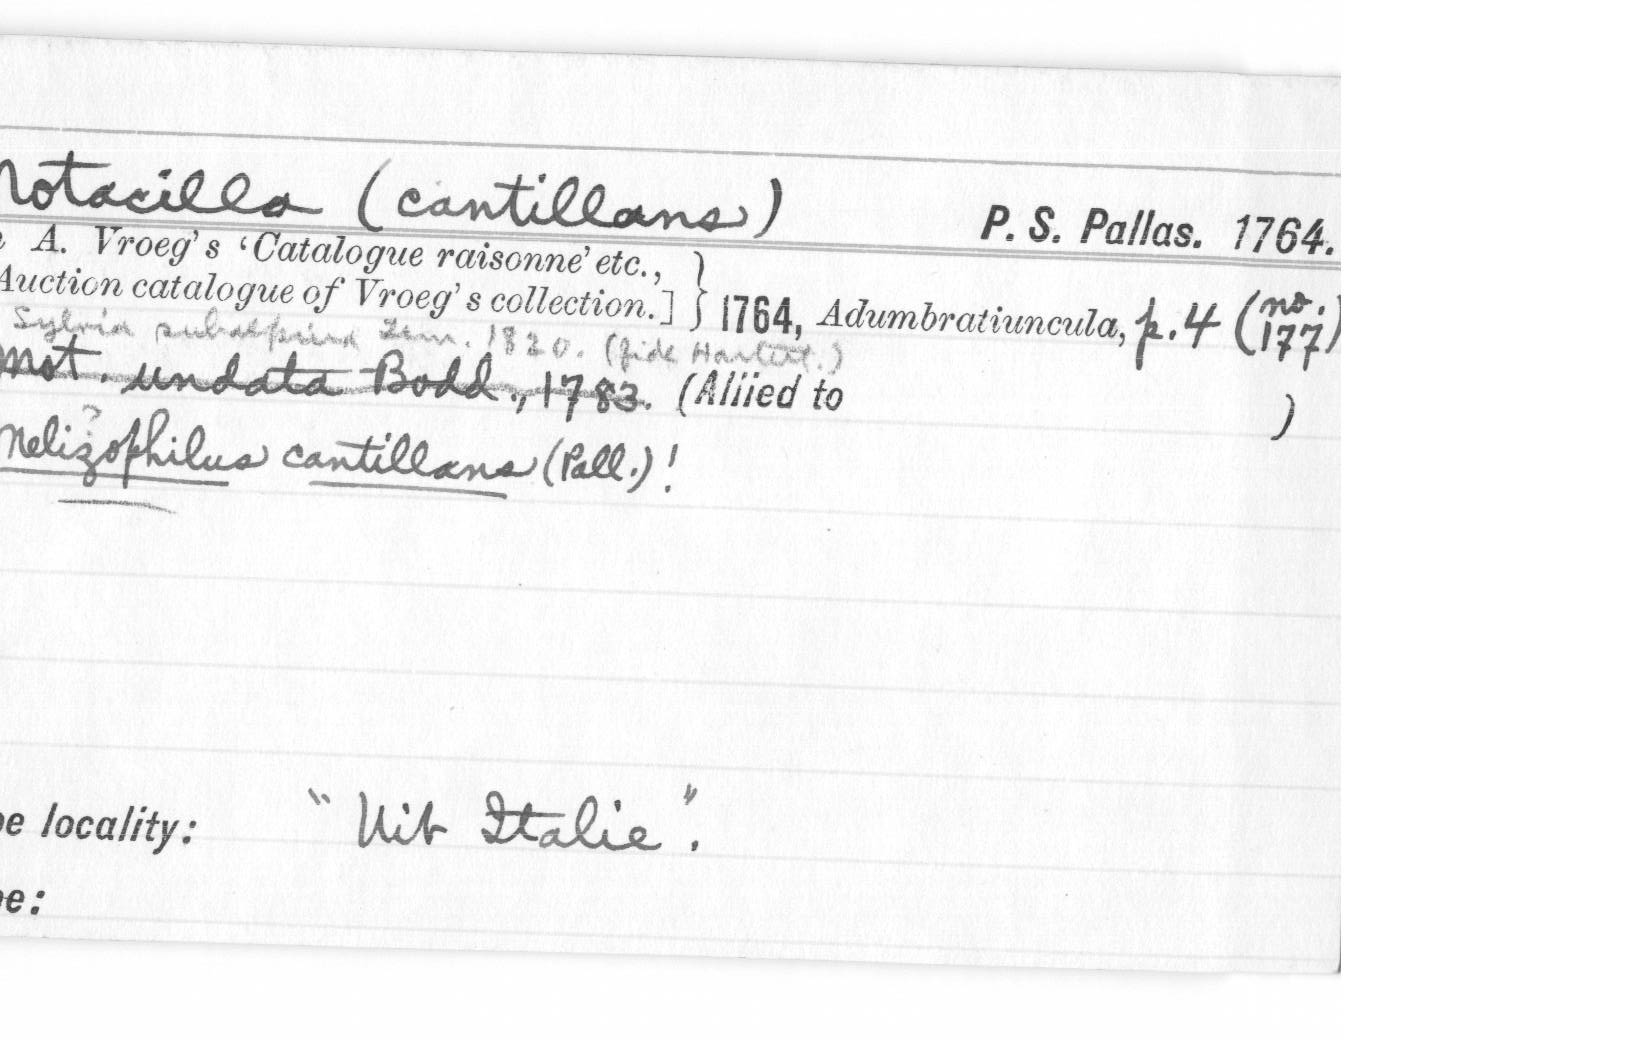 Motacilla (cantillans) P. S. Pallas. 1764.
A. Vroeg's 'Catalogue raisonne' etc.,
Auction catalogue of Vroeg's collection.] } 1764, Adumbratiuncula, p. 4 (no. 177)
Sylvia subalpina Tem. 1820. (fide Hartert.)
Mot. undata Bodd., 1783. (Allied to )
?
Melizophilus cantillans (Pall.)!
pe locality: "Uit Italie".
pe: